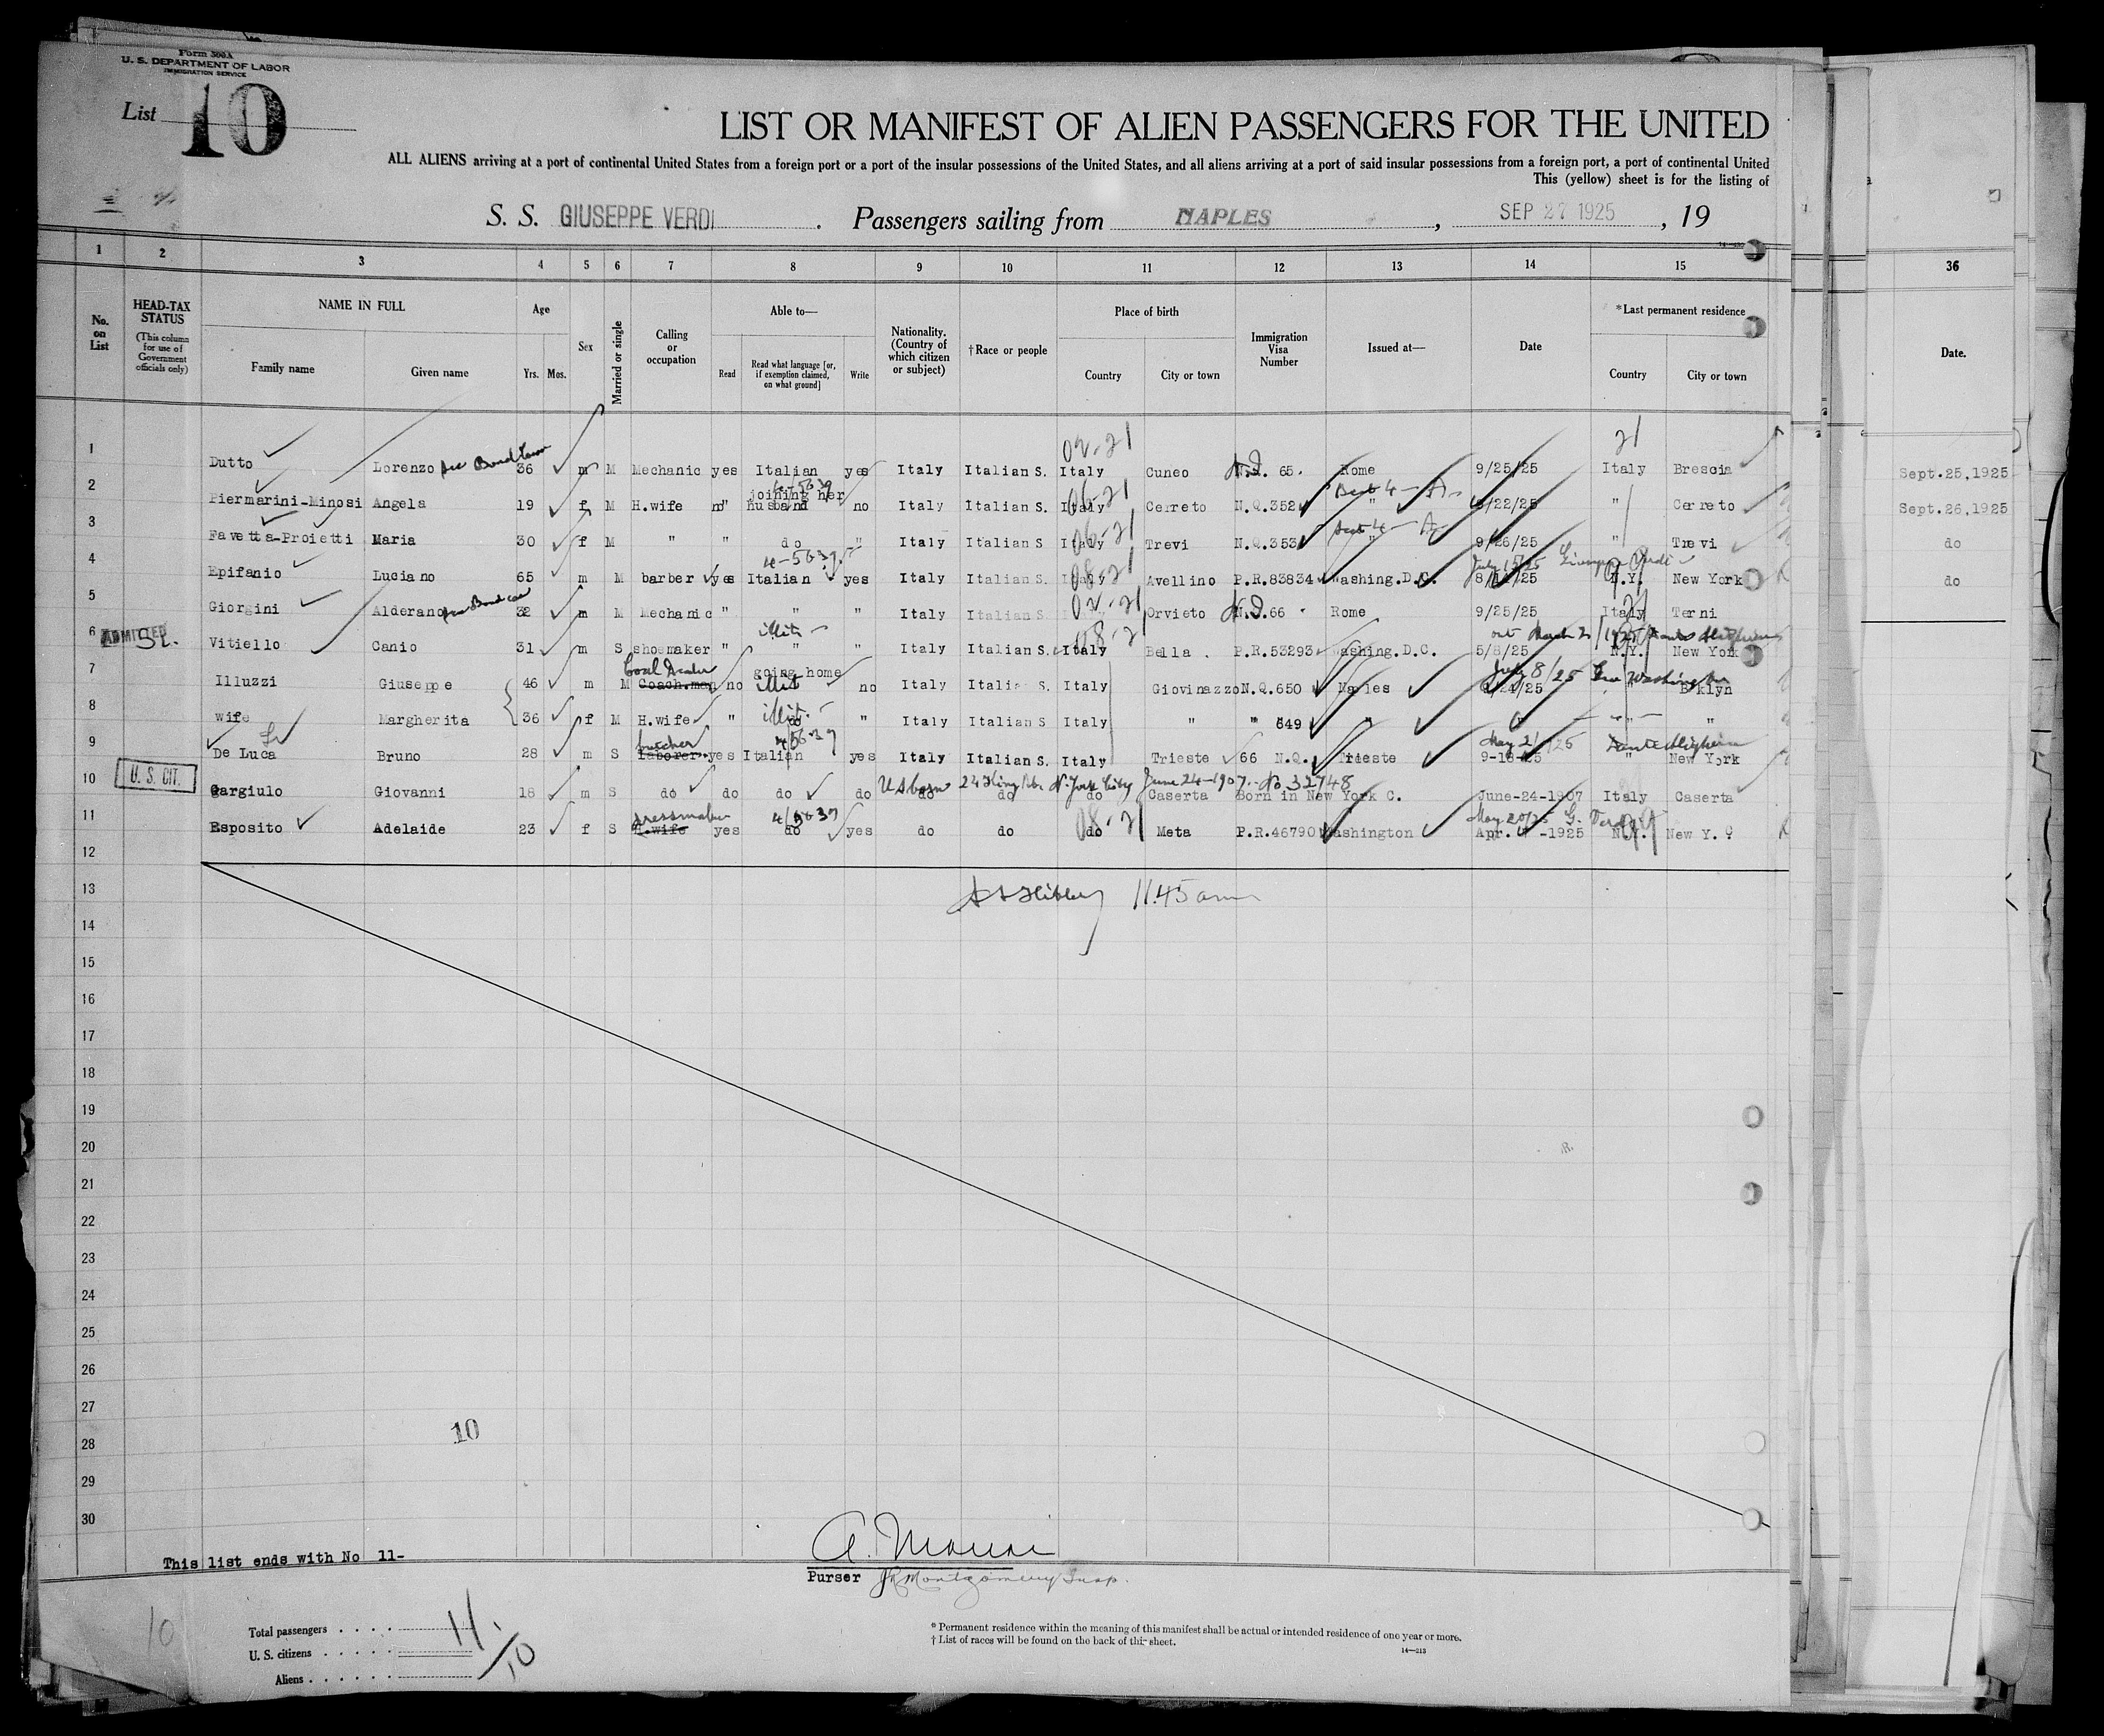 Form 500A
U. S. DEPARTMENT OF LABOR
IMMIGRATION SERVICE
List 10
LIST OR MANIFEST OF ALIEN PASSENGERS FOR THE UNITED
ALL ALIENS arriving at a port of continental United States from a foreign port or a port of the insular possessions of the United States, and all aliens arriving at a port of said insular possessions from a foreign port, a port of continental United
This (yellow) sheet is for the listing of
S. S. GIUSEPPE VERDI . Passengers sailing from NAPLES , SEP 27 1925 , 19
1 2 3 4 5 6 7 8 9 10 11 12 13 14 15 36
No. on List
HEAD-TAX STATUS (This column for use of Government officials only)
NAME IN FULL Family name Given name
Age Yrs. Mos.
Sex
Married or single
Calling or occupation
Able to— Read Read what language [or, if exemption claimed, on what ground] Write
Nationality. (Country of which citizen or subject)
†Race or people
Place of birth Country City or town
Immigration Visa Number
Issued at—
Date
*Last permanent residence Country City or town
Date.
02-21 21
1 Dutto Lorenzo 36 m M Mechanic yes Italian yes Italy Italian S. Italy Cuneo 65. Rome 9/25/25 Italy Brescia Sept.25,1925
joining her 06-21
2 Piermarini-Minosi Angela 19 f M H.wife no " husband no Italy Italian S. Italy Cerreto N.Q.352 " /22/25 " Cerreto Sept.26,1925
06-21
3 Favetta-Proietti Maria 30 f M " " do " Italy Italian S Italy Trevi N.Q.353 9/26/25 " Trevi do
4-5639 08-21 July 15/25
4 Epifanio Luciano 65 m M barber yes Italian yes Italy Italian S. Italy Avellino P.R.83834 Washing.D.C. 8/12/25 N.Y. New York do
02-21 21
5 Giorgini Alderano 32 m M Mechanic " " " Italy Italian S. Orvieto 66 Rome 9/25/25 Italy Terni
ADMITTED
08-2
6 Vitiello Canio 31 m S shoemaker " " " Italy Italian S. Italy Bella . P.R.53293 Washing.D.C. 5/8/25 N.Y. New York
Coal Dealer going home July 8/25 Washington
7 Illuzzi Giuseppe 46 m M Coach.man no illit no Italy Italian S. Italy Giovinazzo N.Q.650 Naples /24/25 " Bklyn
illit.
8 wife Margherita 36 f M H.wife " do " Italy Italian S Italy " " 649 " " " "
butcher 4/5639 May 21/25 Dante Alighieri
9 De Luca Bruno 28 m S laborer yes Italian yes Italy Italian S. Italy Trieste 66 N.Q. Trieste 9-16-25 " New York
U. S. CIT.
US born 24 King N. York City June 24-1907. No 32748
10 Gargiulo Giovanni 18 m S do do do do do do do Caserta Born in New York C. June-24-1907 Italy Caserta
dressmaker 4/5639 08-21 May 20/25 G. Verdi
11 Esposito Adelaide 23 f S H.wife yes do yes do do do Meta P.R.46790 Washington Apr. 4 -1925 N.Y. New Y.
12
13 11.45 am
14
15
16
17
18
19
20
21
22
23
24
25
26
27
10
28
29
30
This list ends with No 11-
Purser JR Montgomery Insp.
10
Total passengers . . . . 11.
U. S. citizens . . . . .
Aliens . . . . . . /10
* Permanent residence within the meaning of this manifest shall be actual or intended residence of one year or more.
† List of races will be found on the back of this sheet.
14—213